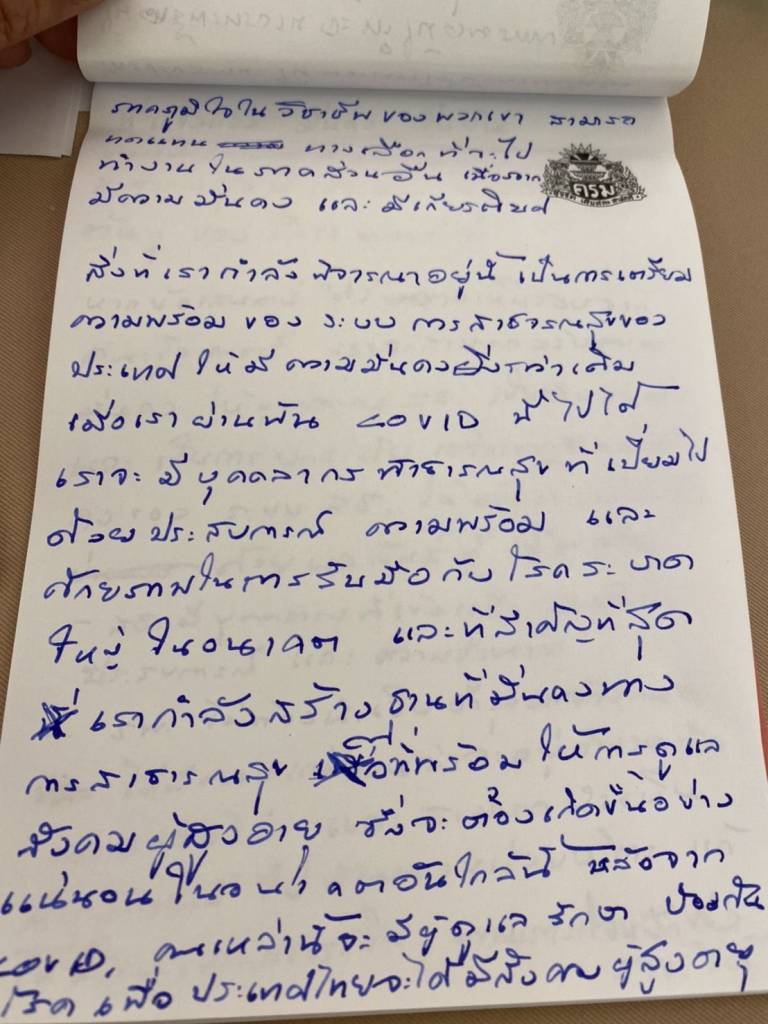 ภาคภูมิใจใน วิชาชีพ ของพวกเขา สามารถ
ทดแทน ทางเลือก ที่จะไป
ทำงาน ในภาคส่วนอื่น เนื่องจาก
มีความมั่นคง และ มีเกียรติยศ
ครม
สิ่งที่เรากำลังพิจารณาอยู่นี้ เป็นการเตรียม
ความพร้อม ของ ระบบ การสาธารณสุขของ
ประเทศ ให้มี ความมั่นคงยิ่งกว่าเดิม
เมื่อเราผ่านพ้น COVID นี้ไปได้
เราจะ มี บุคคลากร สาธารณสุข ที่ เปี่ยมไป
ด้วยประสบการณ์ ความพร้อม และ
ศักยภาพในการรับมือกับ โรคระบาด
ใหญ่ ในอนาคต และที่สำคัญที่สุด
เรากำลังสร้าง ฐานที่มั่นคงทาง
การสาธารณสุข ที่พร้อม ให้การดูแล
สังคมผู้สูงอายุ ซึ่งจะต้องเกิดขึ้นอย่าง
แน่นอน ในอนาคตอันใกล้นี้ หลังจาก
COVID, คนเหล่านี้จะ มีผู้ดูแล รักษา ป้องกัน
โรค เพื่อ ประเทศไทยจะได้มีสังคมผู้สูงอายุ